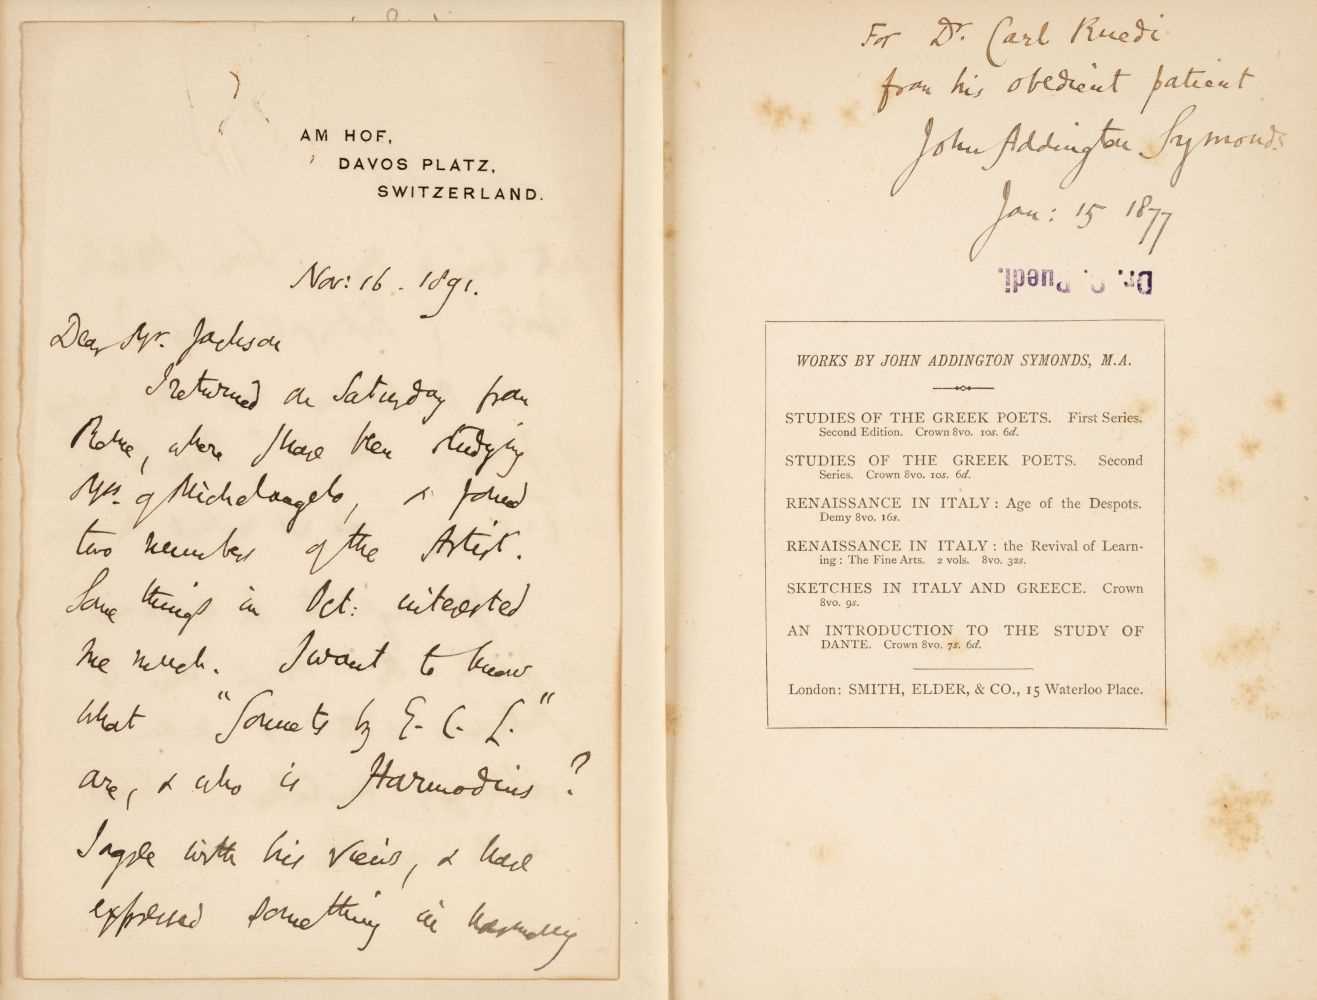 AM HOF,
DAVOS PLATZ,
SWITZERLAND.
Nov: 16 - 1891.
Dear Mr. Jackson
I returned on Saturday from
Rome, where I have been studying
Mss. of Michelangelo, & found
two numbers of the Artist.
Some things in Oct: interested
me much. I want to know
what "Sonnets by E. C. L."
are, & who is Harmodius?
I agree with his views, & have
expressed something in harmony
For Dr. Carl Ruedi
from his obedient patient
John Addington Symonds
Jan: 15 1877
Dr. C. Ruedi.
WORKS BY JOHN ADDINGTON SYMONDS, M.A.
STUDIES OF THE GREEK POETS. First Series.
Second Edition. Crown 8vo. 10s. 6d.
STUDIES OF THE GREEK POETS. Second
Series. Crown 8vo. 10s. 6d.
RENAISSANCE IN ITALY: Age of the Despots.
Demy 8vo. 16s.
RENAISSANCE IN ITALY: the Revival of Learn-
ing: The Fine Arts. 2 vols. 8vo. 32s.
SKETCHES IN ITALY AND GREECE. Crown
8vo. 9s.
AN INTRODUCTION TO THE STUDY OF
DANTE. Crown 8vo. 7s. 6d.
London: SMITH, ELDER, & CO., 15 Waterloo Place.